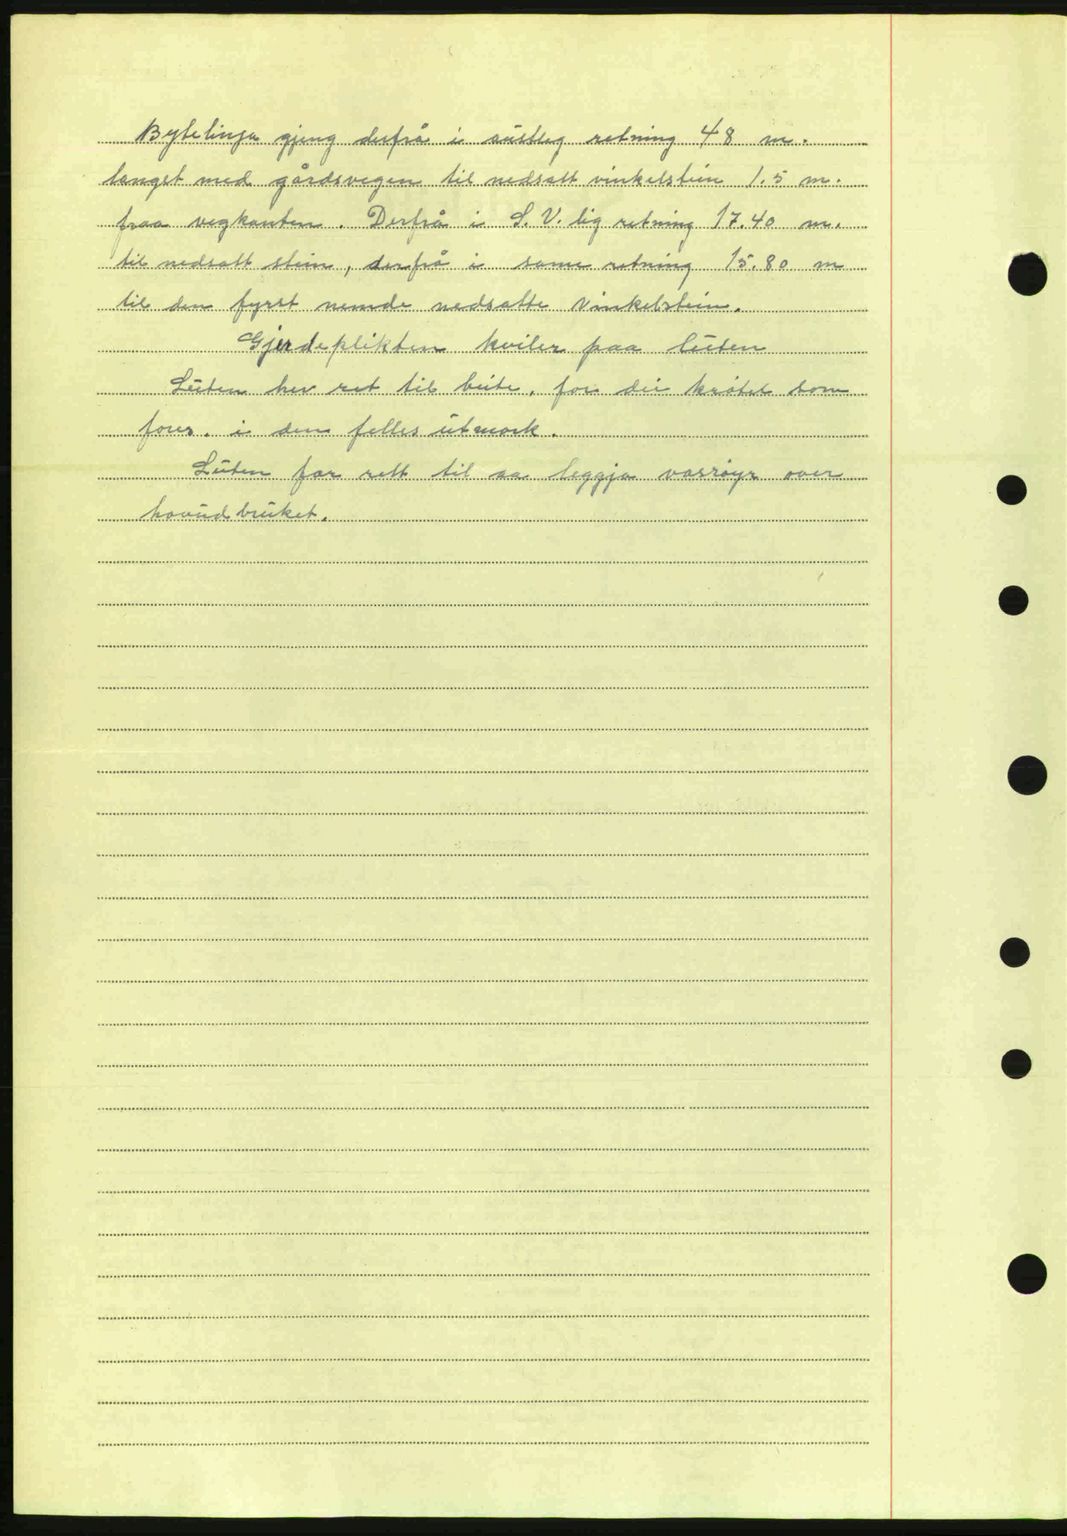 Bytelinja gjeng derfrå i austleg retning 48 m.
langst med gårdsvegen til nedsatt vinkelstein 1.5 m.
fraa vegkanten. Derfrå i S. V. lig retning 17.40 m.
til nedsatt stein, derfrå i same retning 15.80 m
til den fyrst nemde nedsatte vinkelstein.
Gjerdeplikten kviler paa luten
Luten hev ret til beite, for dei krøter som
fores. i den felles utmark.
Luten far rett til aa leggja vasrøyr over
hovudbruket.